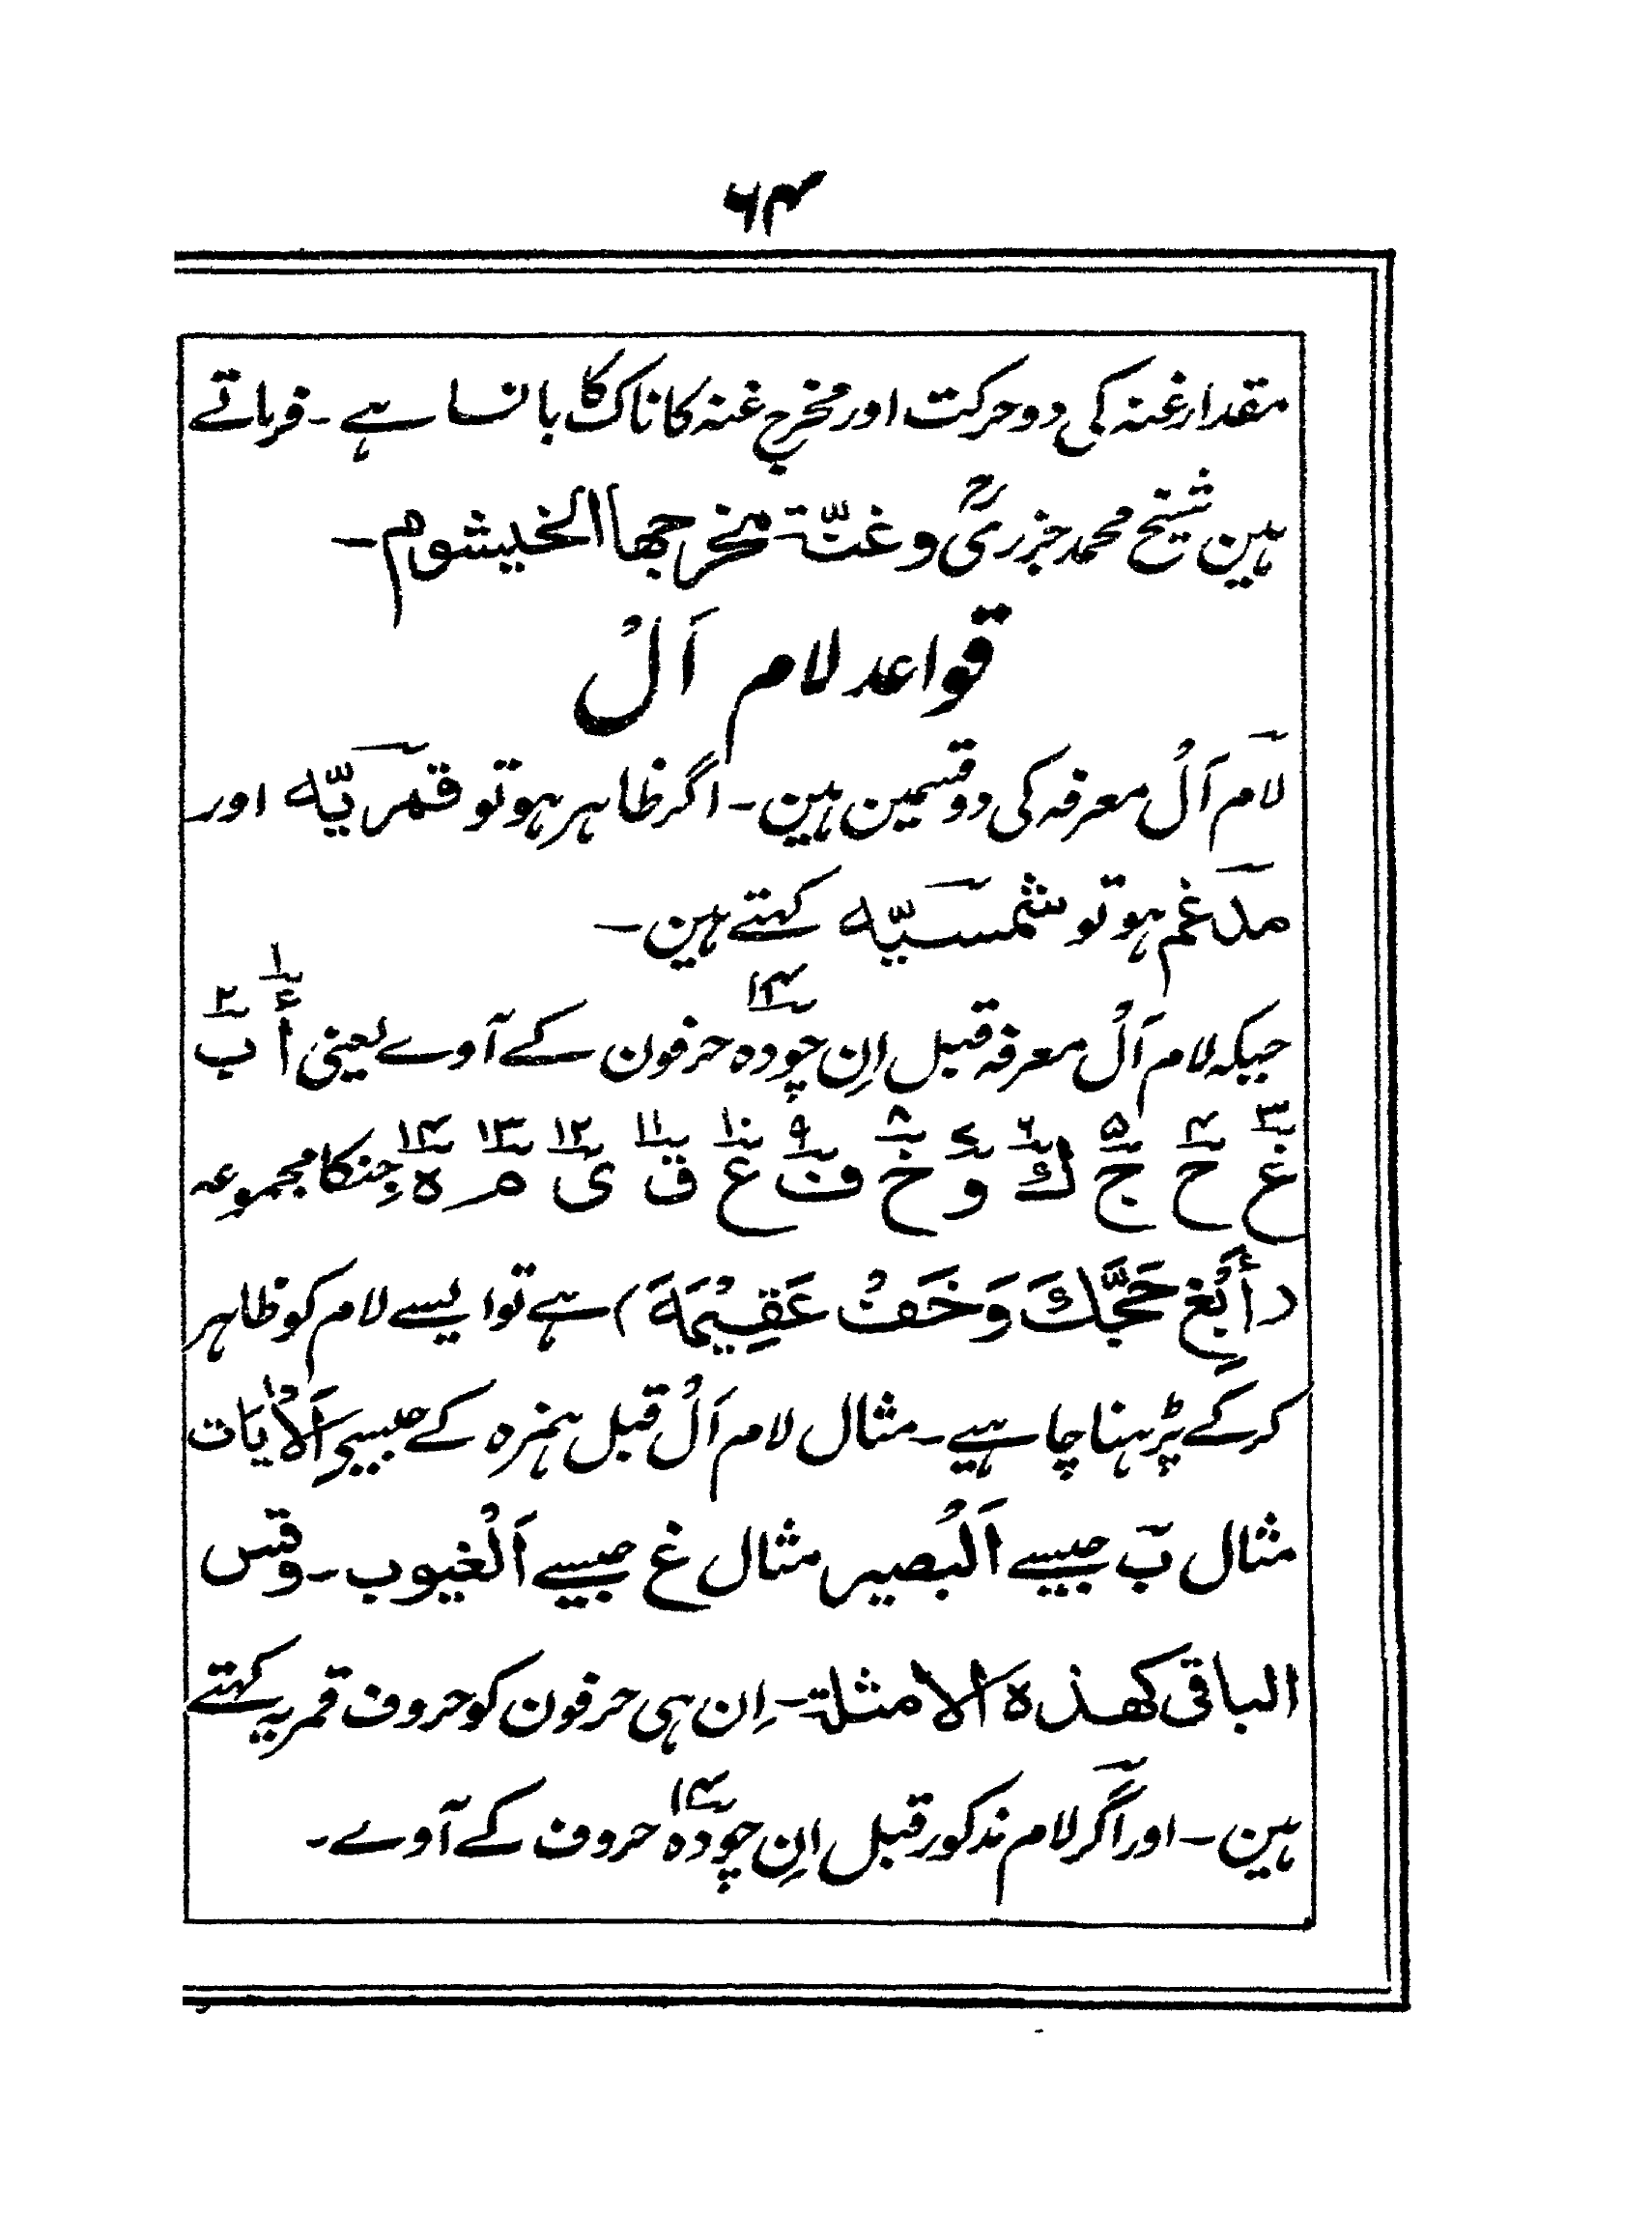 ۶۴
مقدار غنہ کی دو حرکت اور مخرج غنہ کا ناک کا بانسا ہے ۔ فرماتے
ہین شیخ محمد جزریؒ وغنّة مخرجها الخيشوم ۔
قواعد لام اَلْ
لام اَلْ معرفہ کی دو قسمین ہین ۔ اگر ظاہر ہو تو قمریّہ اور
مدغم ہو تو شمسیّہ کہتے ہین ۔
جبکہ لام اَلْ معرفہ قبل اِن چودہ ۱۴ حرفون کے آوے یعنی أ ۱ ب ۲
غ ۳ ح ۴ ج ۵ ك ۶ و ۷ خ ۸ ف ۹ ع ۱۰ ق ۱۱ ی ۱۲ م ۱۳ ہ ۱۴ جنکا مجموعہ
(أَبْغِ حَجَّكَ وَخَفْ عَقِيْمَهَ) ہے تو ایسے لام کو ظاہر
کرکے پڑہنا چاہیے ۔ مثال لام اَلْ قبل ہمزہ کے جیسے اَلْاٰيَات
مثال ب جیسے اَلْبصیر مثال غ جیسے اَلْغیوب ۔ وقس
الباقی کھذہ الامثلة ۔ اِن ہی حرفون کو حروف قمریہ کہتے
ہین ۔ اور اگر لام مذکور قبل اِن چودہ ۱۴ حروف کے آوے ۔